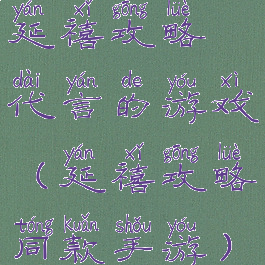 yán xǐ gōng lüè
延禧攻略
dài yán de yóu xì
代言的游戏
yán xǐ gōng lüè
(延禧攻略
tóng kuǎn shǒu yóu
同款手游)